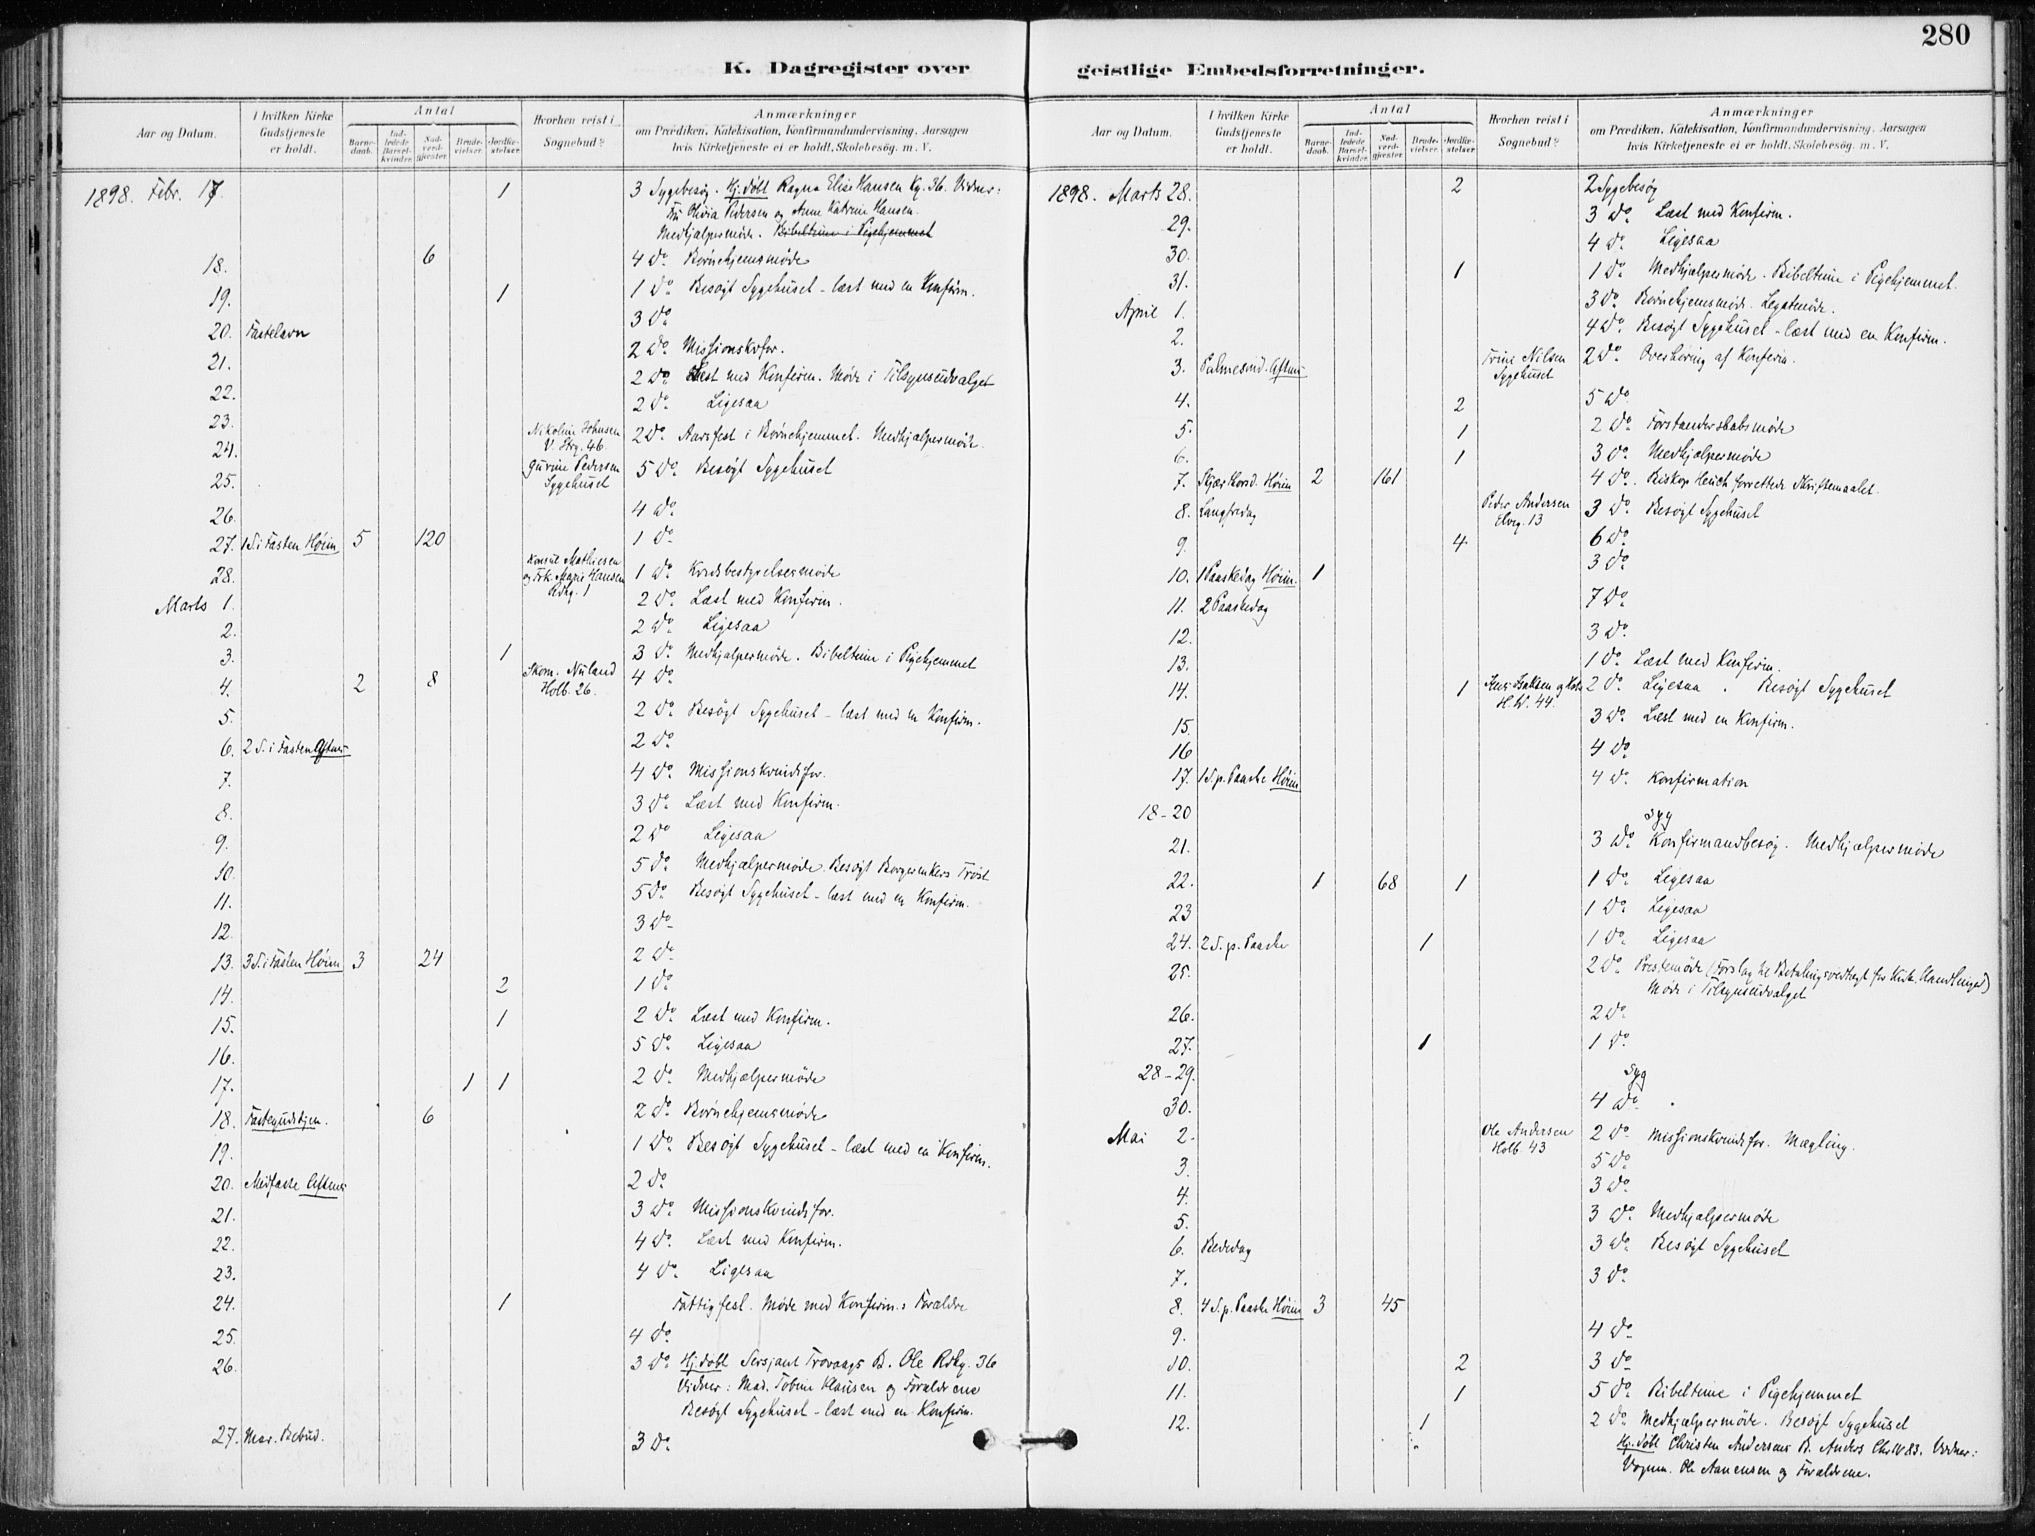 280
K. Dagregister over geistlige Embedsforretninger.
Aar og Datum.
I hvilken Kirke Gudstjeneste er holdt.
Antal
Barnedaab.
Indledede Barselkvinder.
Nadverdgjester.
Brudevielser.
Jordfæstelser
Hvorhen reist i Sognebud?
Anmærkninger
om Prædiken, Katekisation, Konfirmandundervisning, Aarsagen
hvis Kirketjeneste ei er holdt, Skolebesøg. m. V.
1898. Febr. 17. 1 3 Sygebesøg. Hj.døbt Ragna Elise Hansen Kg. 36. Vidner:
Fr. Olivia Pedersen og Anne Katrine Hansen.
Medhjælpermøde. Bibeltime i Pigehjemmet
18. 6 4 Do. Børnehjemsmøde
19. 1 1 Do. Besøgt Sygehuset - læst med en Konfirm.
20. Fastelavn 3 Do
21. 2 Do. Missionskvfor.
22. 2 Do. Læst med Konfirm. Møde i Tilsynsudvalget
23. 2 Do. Ligesaa
24. Nikoline Johnsen V. Strg. 46 2 Do. Aarsfest i Børnehjemmet. Medhjælpermøde.
25. Gurine Pedersen Sygehuset 5 Do. Besøgt Sygehuset
26. 4 Do.
27. 1 S. i Fasten Høim 5 120 1 Do.
28. Konsul Mathiesen og Frk. Marie Hansen Rdhg. 1 1 Do. Kredsbestyrelsesmøde
Marts 1. 2 Do. Læst med Konfirm.
2. 2 Do. Ligesaa
3. 1 3 Do. Medhjælpermøde. Bibeltime i Pigehjemmet
4. 2 8 Skom. Nuland Holb. 26. 4 Do.
5. 2 Do. Besøgt Sygehuset - læst med en Konfirm.
6. 2 S. i Fasten Aftens 2 Do.
7. 4 Do. Missionskvindefor.
8. 3 Do. Læst med Konfirm.
9. 2 Do Ligesaa
10. 5 Do. Medhjælpermøde. Besøgt Borgerenkers Trøst
11. 5 Do. Besøgt Sygehuset - læst med en Konfirm.
12. 3 Do
13. 3 S. i Fasten Høim 3 24 2 Do.
14. 2 1 Do.
15. 1 2 Do. Læst med Konfirm.
16. 5 Do. Ligesaa
17. 1 1 2 Do. Medhjælpermøde
18. Fastegudstjen. 6 2 Do. Børnehjemsmøde
19. 1 Do. Besøgt Sygehuset - læst med en Konfirm.
20. Midfaste Aftens 2 Do.
21. 3 Do. Missionskvindefor.
22. 4 Do. Læst med Konfirm.
23. 4 Do. Ligesaa
24. 1 Fattigfest. Møde med Konfirm.s Forældre
25. 4 Do.
26. 3 Do. Hj.døbt Sersjant Trovaags B. Ole Rdhg. 36
Vidner: Mad. Tobine Klausen og Forældrene
Besøgt Sygehuset - læst med en Konfirm.
27. Mar. Bebud. 3 Do.
Aar og Datum.
I hvilken Kirke Gudstjeneste er holdt.
Antal
Barnedaab.
Indledede Barselkvinder.
Nadverdgjester.
Brudevielser.
Jordfæstelser
Hvorhen reist i Sognebud?
Anmærkninger
om Prædiken, Katekisation, Konfirmandundervisning, Aarsagen
hvis Kirketjeneste ei er holdt, Skolebesøg. m. V.
1898. Marts 28. 2 2 Sygebesøg
29. 3 Do. Læst med Konfirm.
30. 4 Do. Ligesaa
31. 1 1 Do. Medhjælpermøde. Bibeltime i Pigehjemmet.
April 1. 3 Do. Børnehjemsmøde. Legatmøde.
2. 4 Do. Besøgt Sygehuset - læst med en Konfirm.
3. Palmesønd. Aftens Trine Nilsen Sygehuset 2 Do. Overhøring af Konfirm.
4. 2 5 Do
5. 1 2 Do. Forstanderskabsmøde
6. 1 3 Do. Medhjælpermøde
7. Skjærtorsd. Høim 2 161 4 Do. Biskop Heuch forrettede Skriftemaalet.
8. Langfredag Peder Andersen Elveg. 13 3 Do. Besøgt Sygehuset
9. 4 6 Do
10. 1 Paaskedag Høim. 1 3 Do.
11. 2 Paaskedag 7 Do.
12. 3 Do.
13. 1 Do. Læst med Konfirm.
14. 1 H.W. 44. 2 Do. Ligesaa. Besøgt Sygehuset
15. 3 Do. Læst med en Konfirm.
16 4 Do
17. 1 S. p. Paaske Høim 4 Do. Konfirmation
18-20 syg
21. 3 Do. Konfirmandbesøg. Medhjælpermøde
22. 1 68 1 1 Do. Ligesaa
23 1 Do. Ligesaa
24. 2 S. p. Paaske 1 1 Do. Ligesaa
25. 2 Do. Prestemøde (Forslag til Betalingsvedtægt for Kirk. Handlinger)
Møde i Tilsynsudvalget
26. 2 Do.
27. 1 1 Do.
28-29. Syg
30. 4 Do.
Mai 2. Ole Andersen Holb. 43 2 Do. Missionskvindefor. Mægling.
3. 5 Do.
4. 3 Do.
5. 3 Do. Medhjælpermøde
6. Bededag 3 Do. Besøgt Sygehuset
7. 3 Do.
8. 4 S. p. Paaske Høim 3 45
9. 4 Do.
10. 2 3 Do
11. 1 5 Do. Bibeltime i Pigehjemmet
12. 1 2 Do. Medhjælpermøde. Besøgt Sygehuset
Hj.døbt Christen Andersens B. Anders Chr IV 83. Vidner:
Vognm. Ole Aanensen og Forældrene.